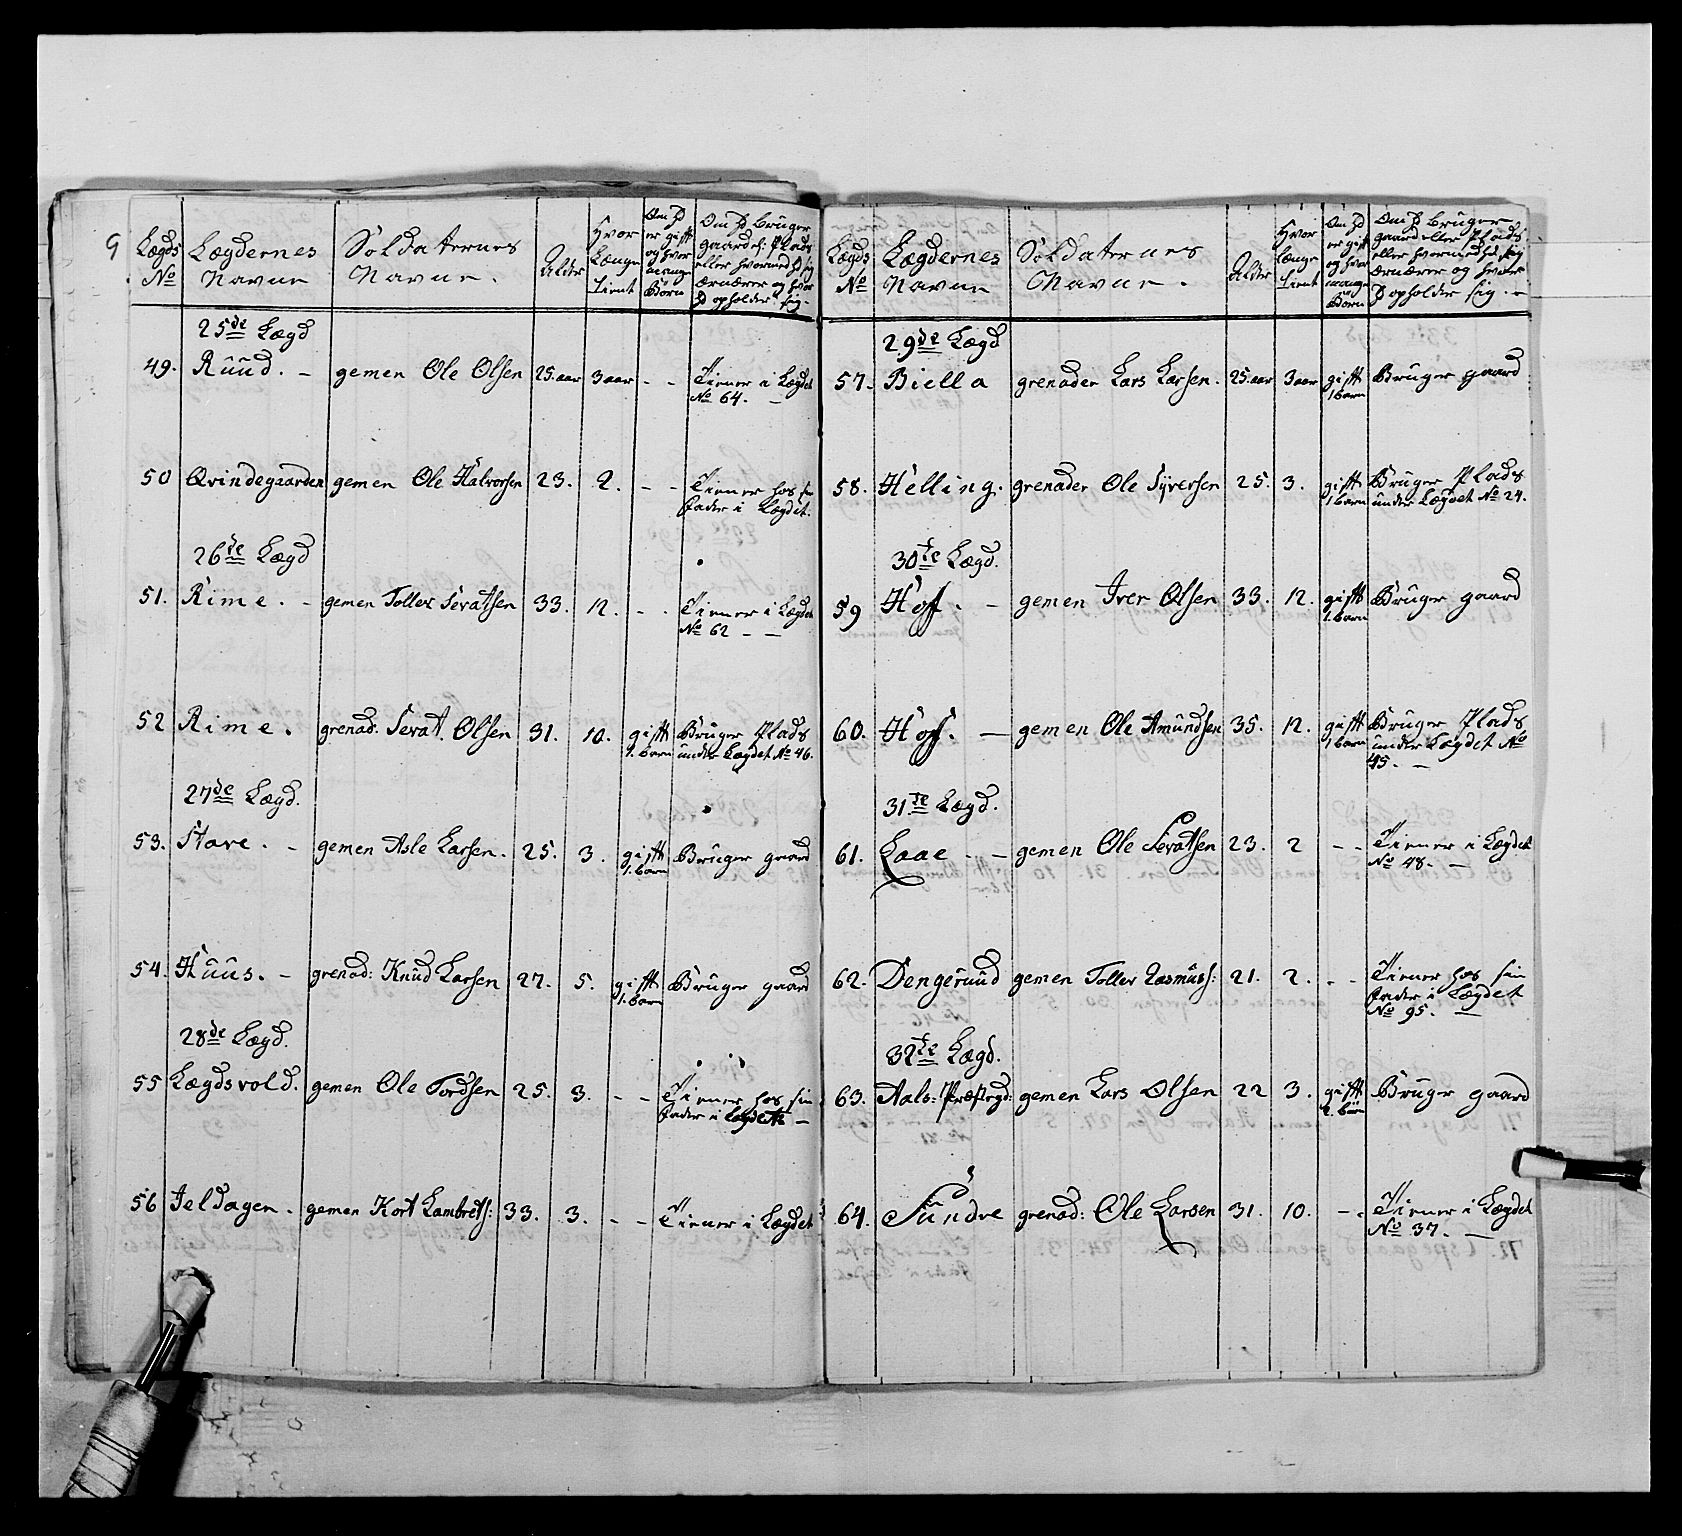 9
Lægds No | Lægdernes Navne | Soldaternes Navne. | Alder | Hvor Længe Tient | Om D er gift og hvor mange Börn | Om D bruger gaard el: Plads eller hvormed D sig ernærer og hvor D opholder sig.
25de Lægd
49. Ruud. - gemen Ole Olsen 25.aar 3 aar - - Tiener i Lægdet
No 64. -
50 Qvindegaarden gemen Ole Halvorsen 23. 2. - - Tiener hos sin
fader i Lægdet.
26de Lægd
51. Rime. - gemen Toller Sevatsen 33. 12. - - Tiener i Lægdet
No 62 - -
52 Rime. grenad: Sevat Olsen 31. 10. gift Bruger Plads
1. barn under Lægdet No 46.
27de Lægd.
53. Stave. - gemen Asle Larsen. 25. 3. gift Bruger gaard
1. barn
54. Huus. - grenad: Knud Larsen 27. 5. gift Bruger gaard
1. barn
28de Lægd.
55 Lægdsvold. gemen Ole Tordsen 25. 3. - - Tiener hos sin
fader i Lægdet -
56 Jeldagen. gemen Kort Lambrets: 33. 3. - - Tiener i Lægdet
Lægds No | Lægdernes Navne | Soldaternes Navne. | Alder | Hvor længe tient | Om D er gift og hvor mange Börn | Om D bruger gaard eller Plads eller hvormed D sig ernærer og hvor D opholder sig. -
29de Lægd
57. Biella grenader Lars Larsen. 25.aar 3 aar gift Bruger gaard
1 barn
58. Helling. grenader Ole Syversen 25. 3. gift Bruger Plads
1 barn under Lægdet No 24.
30te Lægd.
59 Hoff. - gemen Iver Olsen 33. 12. gift Bruger gaard
1. barn
60. Hoff. - gemen Ole Amundsen 35. 12. gift Bruger Plads
1 barn under Lægdet No
45. -
31te Lægd.
61. Laae. - gemen Ole Sevatsen 23. 2 - - Tiener i Lægdet
No 48. -
62. Dengerud gemen Toller Rasmuss: 21. 2. - - Tiener hos sin
fader i Lægdet
No 95. -
32te Lægd.
63. Aals: Præstegd: gemen Lars Olsen 22 3. gift Bruger gaard
2. börn
64. Sundre grenad: Ole Larsen 31. 10. - - Tiener i Lægdet
No 37. -